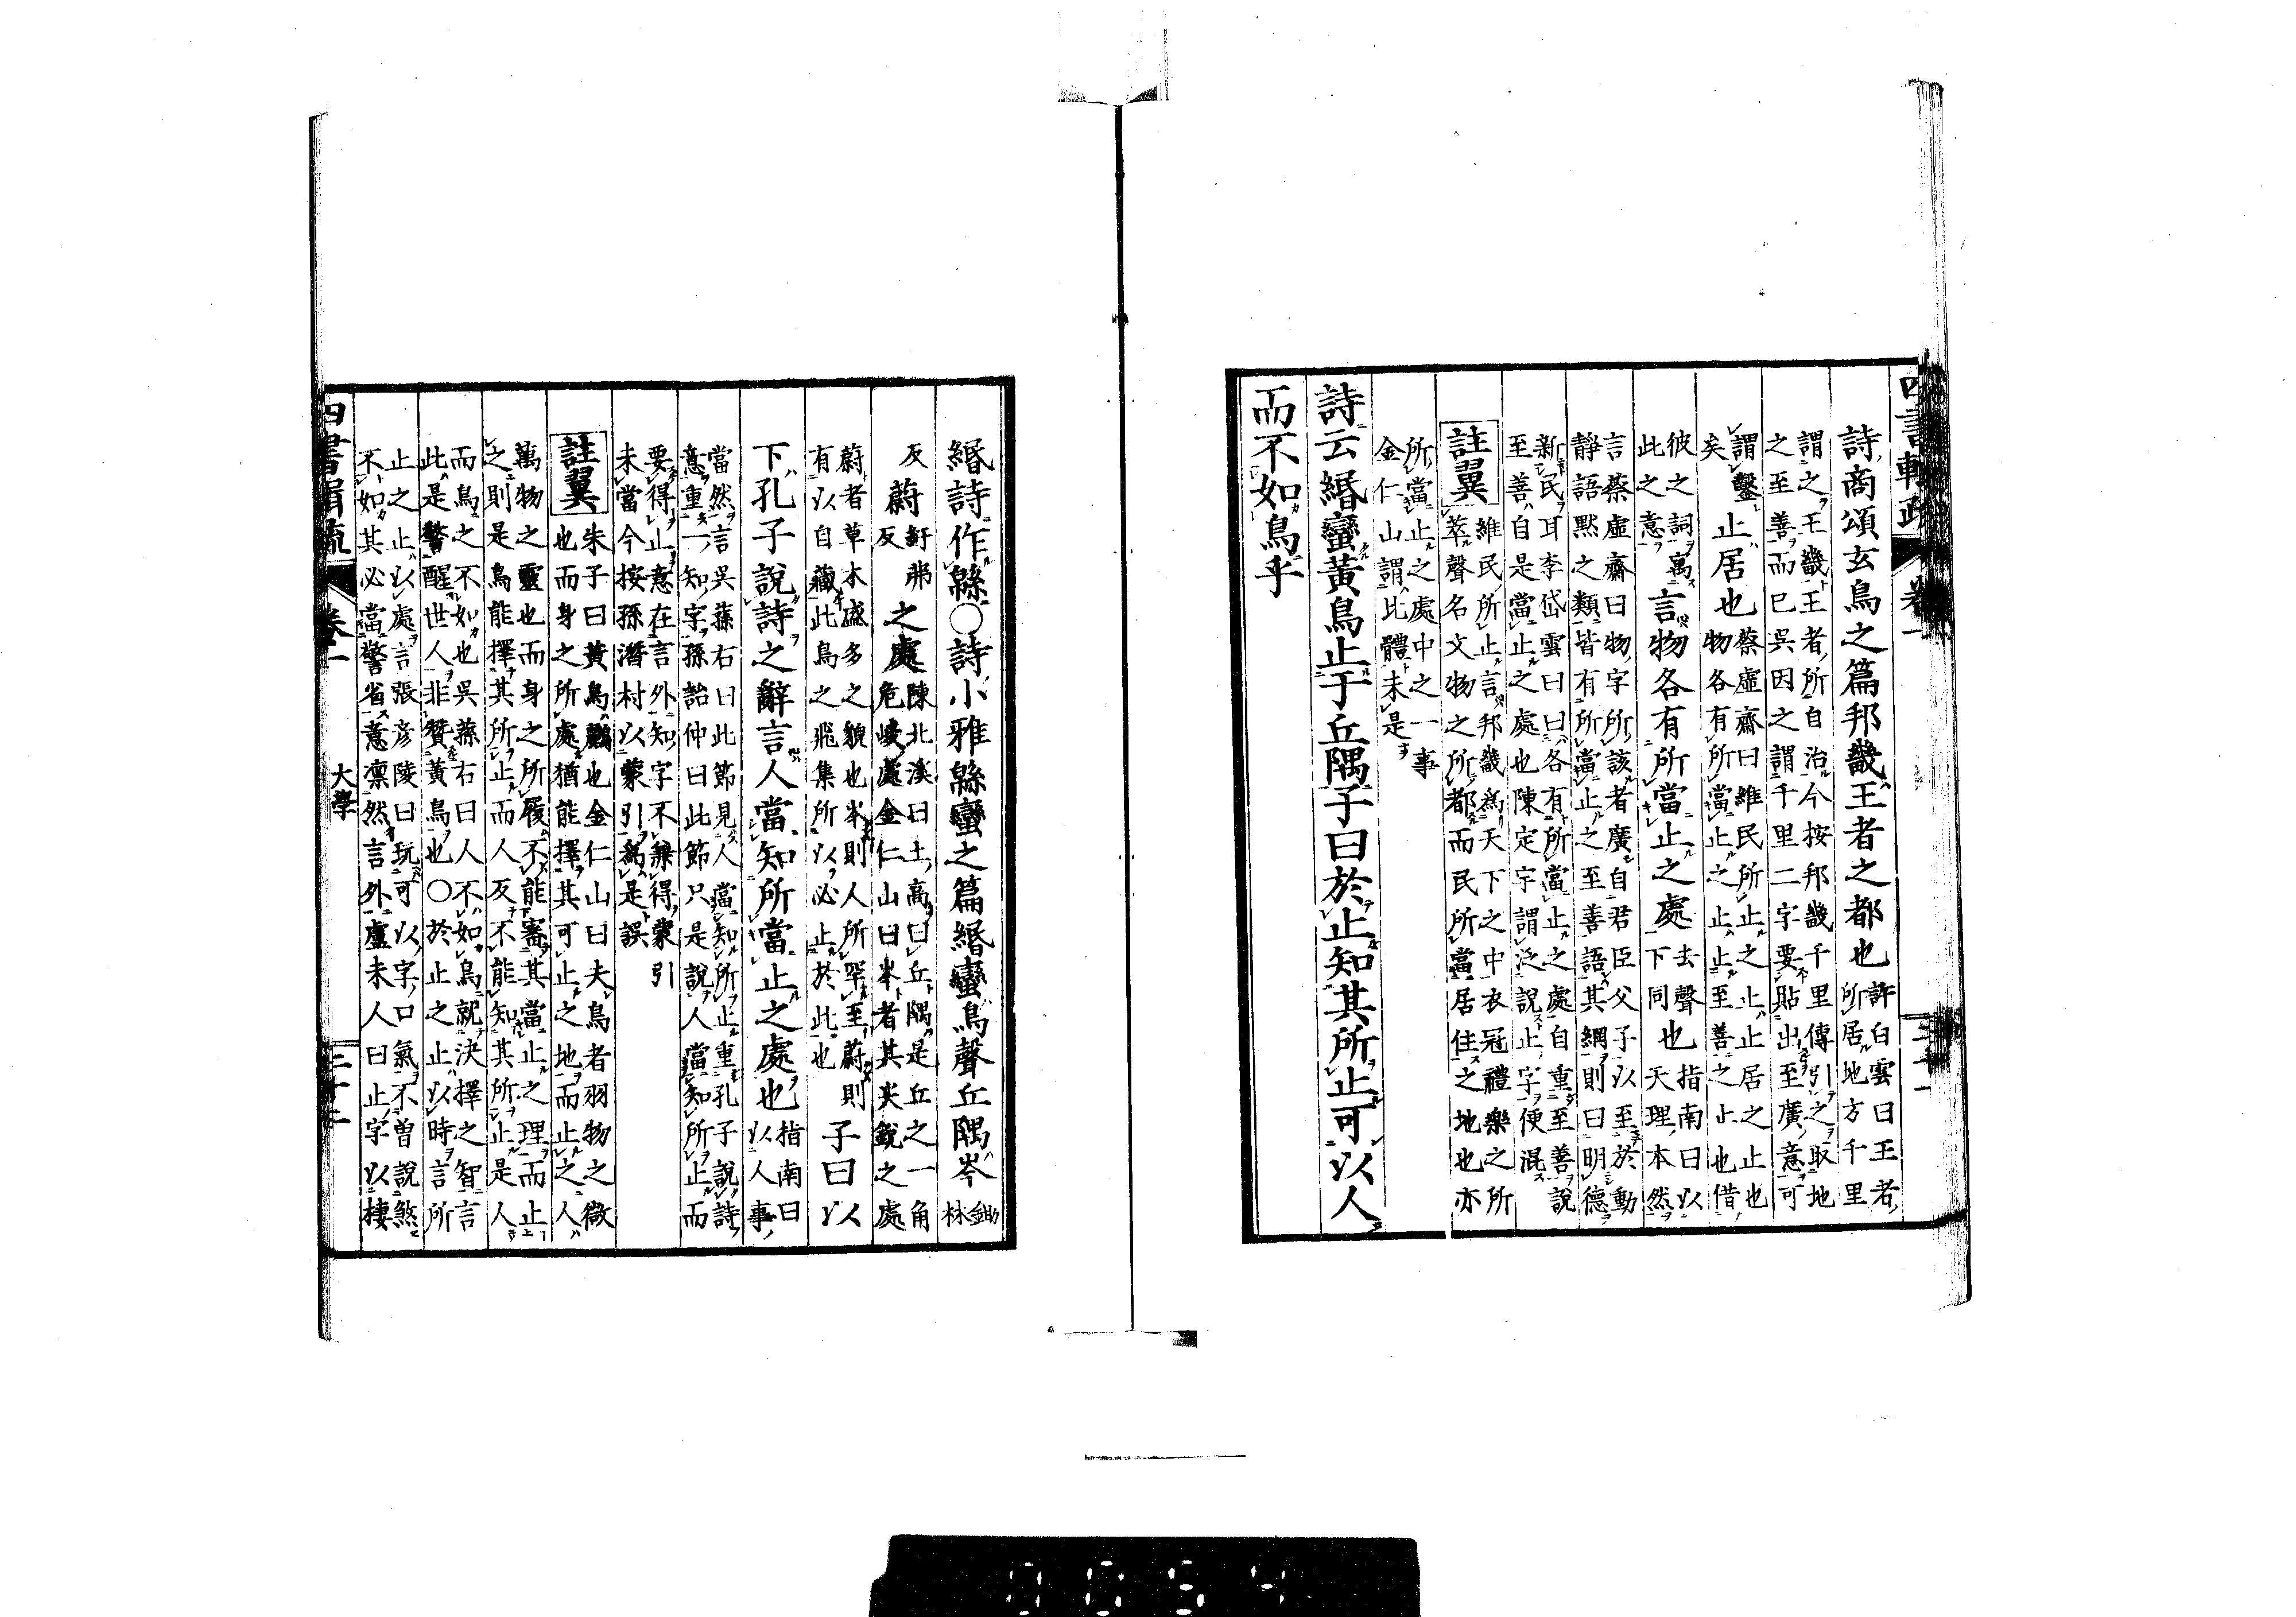 四書輯疏 卷一
詩商頌玄鳥之篇邦畿王者之都也許白雲曰王者
所居地方千里
謂之王畿王者所自治今按邦畿千里傳引之取地
之至善而已吳因之謂千里二字要貼出至廣意可
謂鑿
矣
止居也
蔡虛齋曰維民所止之止止居之止也
物各有所當止之止止至善之止也借
彼之詞寓
此之意
言物各有所當止之處
去聲
下同
也
指南曰以
天理本然
言蔡虛齋曰物字所該者廣自君臣父子以至於動
靜語默之類皆有所當止之至善語其綱則曰明德
新民耳李岱雲曰曰各有所當止之處自重至善說
至善自是當止之處也陳定宇謂泛說止字便混
註翼
維民所止言邦畿為天下之中衣冠禮樂之所
萃聲名文物之所都而民所當居住之地也亦
所當止之處中之一事
金仁山謂此體未是
詩云緡蠻黃鳥止于丘隅子曰於止知其所止可以人
而不如鳥乎
緡詩作緜○詩小雅緜蠻之篇緡蠻鳥聲丘隅岑
鋤
林
反
蔚
紆弗
反
之處
陳北溪曰土高曰丘隅是丘之一角
危峻處金仁山曰岑者其尖銳之處
蔚者草木盛多之貌也岑則人所罕至蔚則
有以自藏此鳥之飛集所以必止於此也
子曰以
下孔子說詩之辭言人當知所當止之處也
指南曰
以人事
當然言吳蓀右曰此節見人當知所止重孔子說詩
意重一知字孫詒仲曰此節只是說人當知所止而
要得止意在言外知字不兼得蒙引
未當今按孫潛村以蒙引為是誤
註翼
朱子曰黃鳥鸝也金仁山曰夫鳥者羽物之微
也而身之所處猶能擇其可止之地而止之人
萬物之靈也而身之所履不能審其當止之理而止
之則是鳥能擇其所止而人反不能知其所止是人
而鳥之不如也吳蓀右曰人不如鳥就決擇之智言
此是警醒世人非贊黃鳥也○於止之止以時言所
止之止以處言張彥陵曰玩可以字口氣不曾說煞
不如其必當警省意凜然言外盧未人曰止字以棲
四書輯疏 卷一 大學 二十二